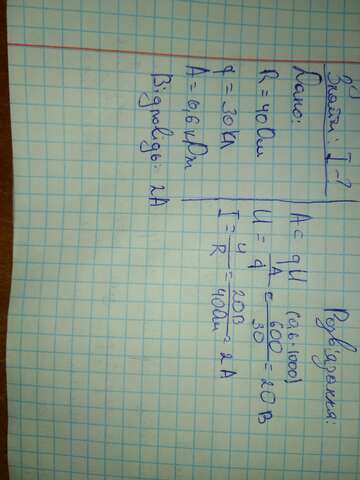 Знайти: I-?
Дано:
R = 40 Ом
q = 30 Кл
A = 0,6 кДж
Відповідь: 2А
Розв'язання:
A = qU
U = A/q = 600/30 (0,6·1000) = 20 В
I = U/R = 20В/40Ом = 2 А